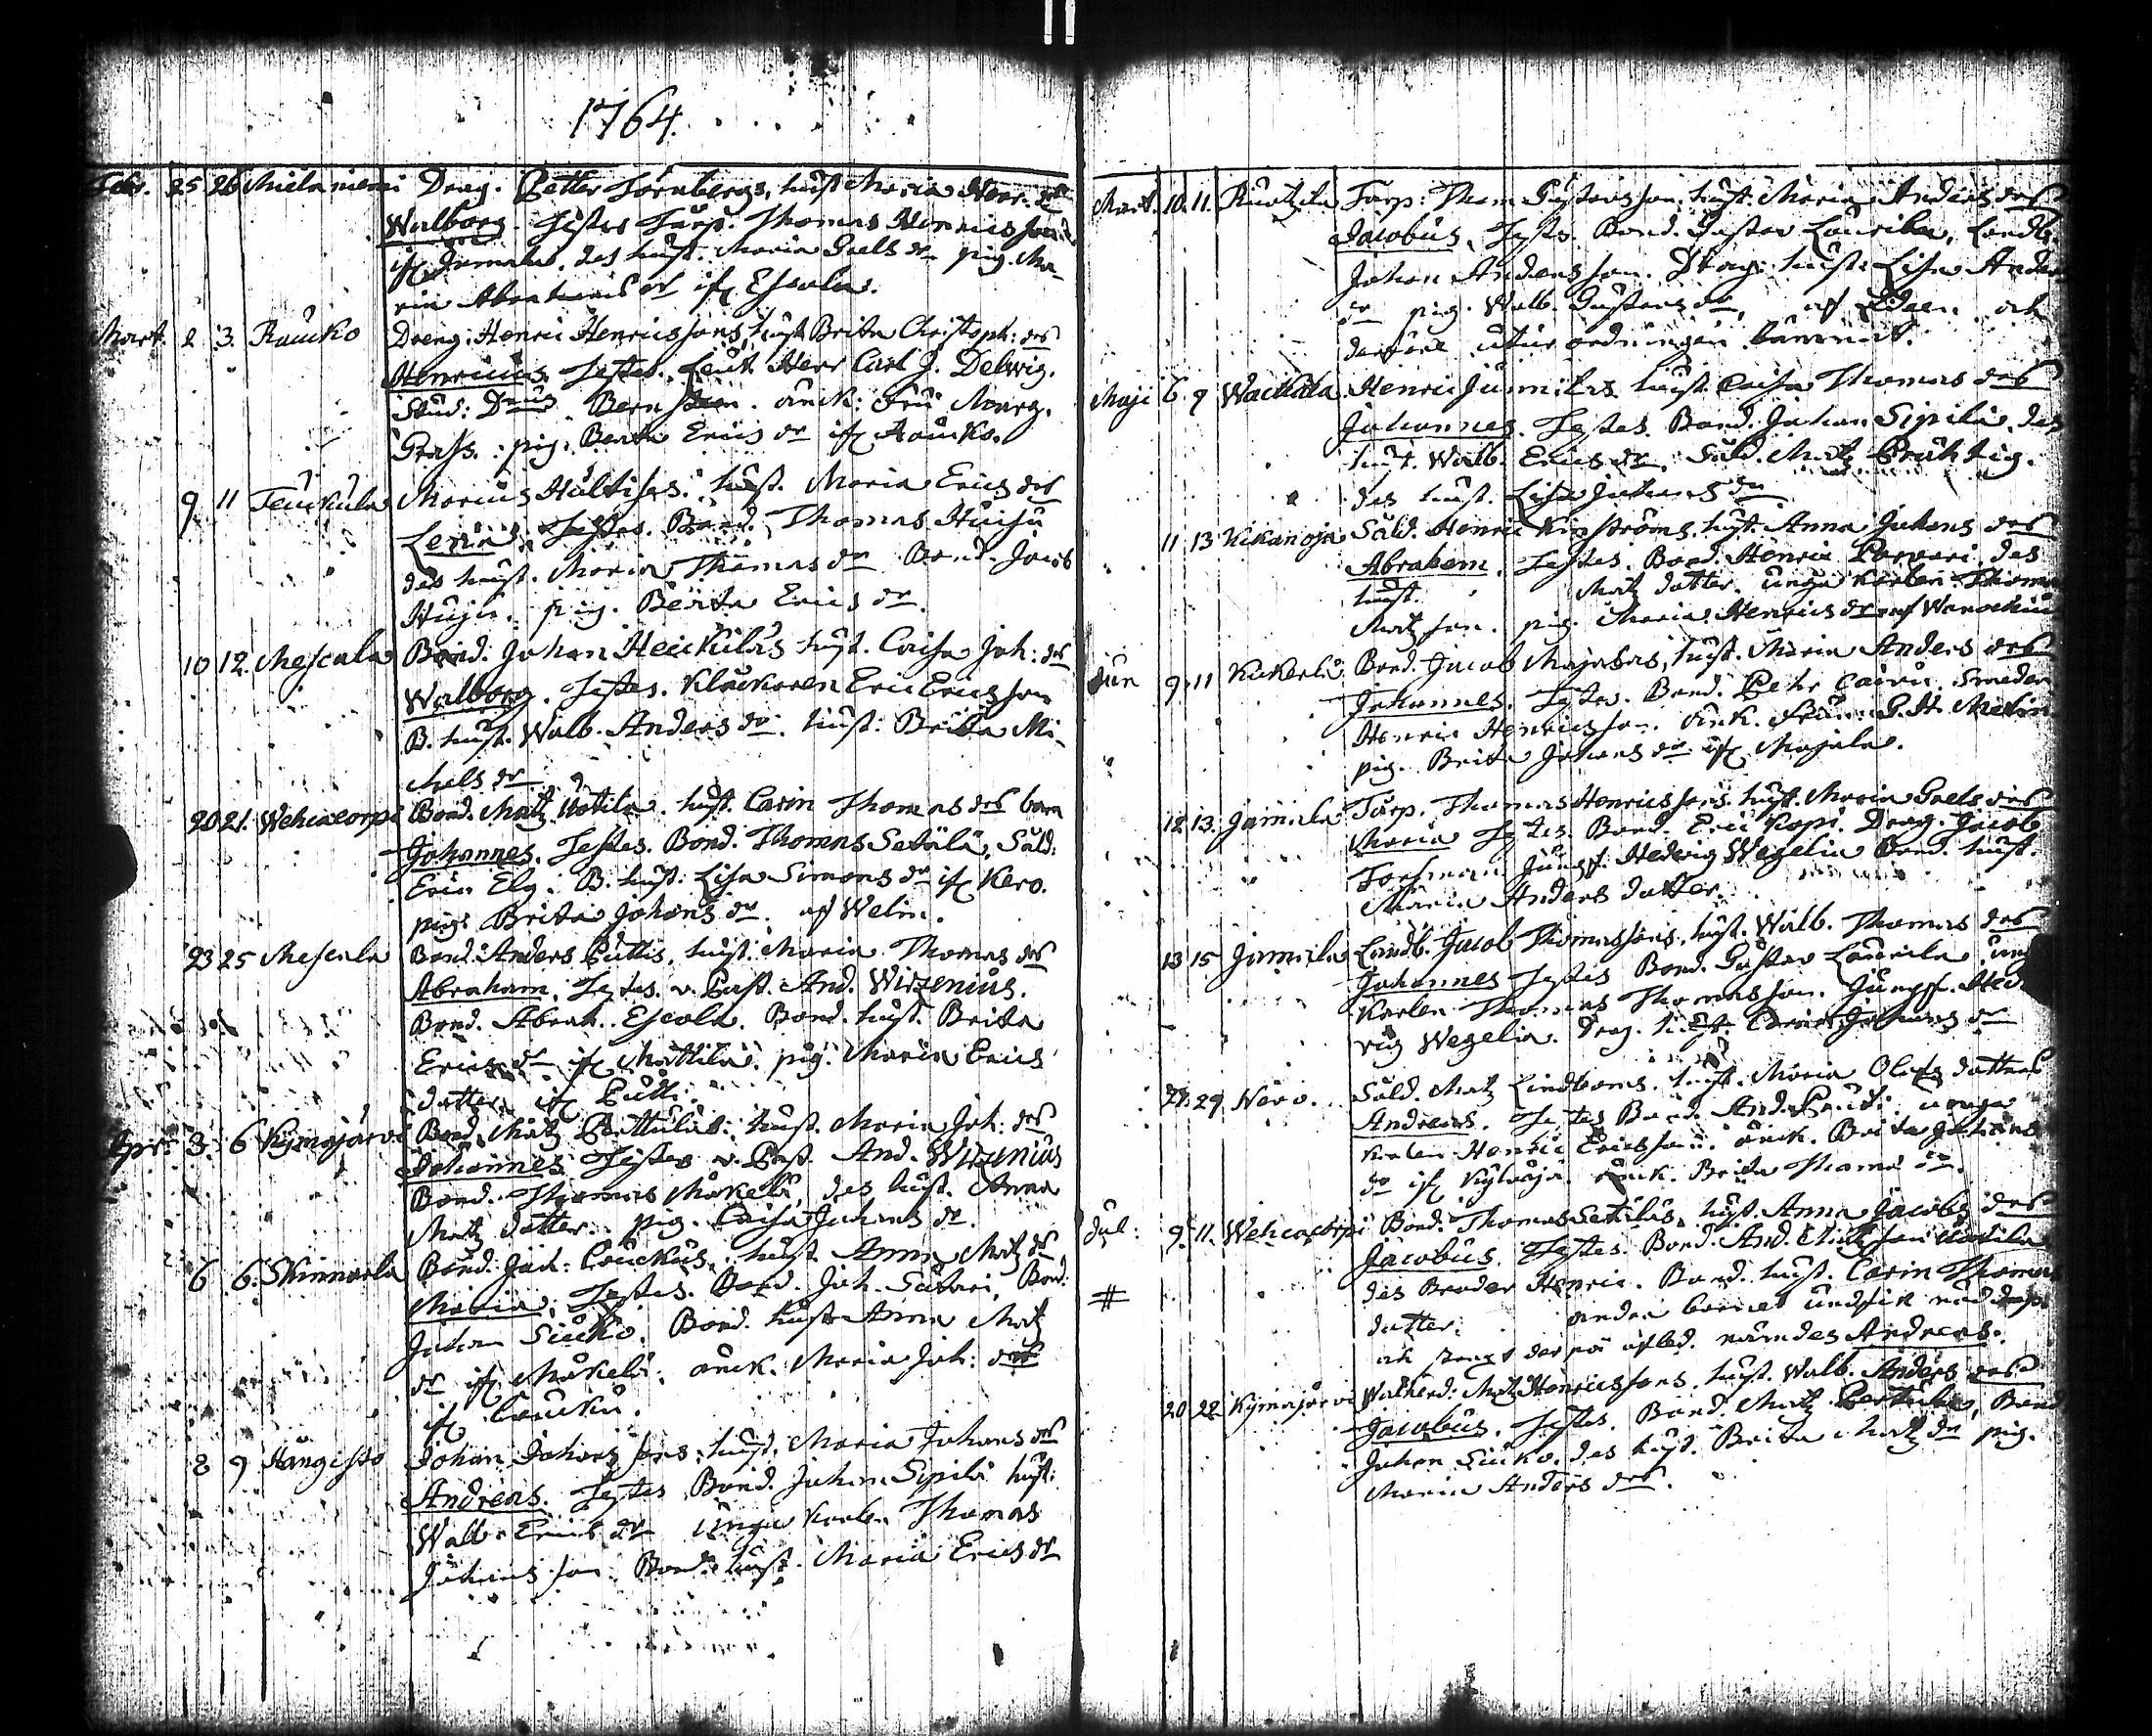 1764.
Febr. 25 26 Mielaniemi Drag. Petter Törnbergs, hust. Maria Henr. drs
Walborg. Testes Torp. Thomas Henricsson
if Jumala. des hust. Maria Gaels dr pig. Ma-
ria Abrahams dr if Escola.
Mart. 2 3. Raucko Dreng: Henric Henricssons, hust Brita Christoph: drs
Henricus. Testes. Leut. Herr Carl J. Delwig.
Stud: Dnus. Bern . änck: Fru Marg.
Grass. : pig. Berta Erics dr if Raucko.
9 11 Teuckula Marcus Hultisas. hust. Maria Erics drs
Lena. Testes. Bond. Thomas Huiju
des hust. Maria Thomas dr Bond. Jacob
Huju. pig. Berta Erics dr.
10 12. Mescala Bond. Johan Heickilas hust. Caisa Joh: drs
Walborg. Testes. Klåckaren Eric Ericsson
B. hust. Walb. Anders dr. hust: Brita Mi-
chels dr
20 21. Wehcacorpi Bond. Matz Hotila. hust. Carin Thomas drs barn
Johannes. Testes. Bond. Thomas Setälä, Sold:
Eric Elg. B. hust: Lisa Simons dr if Kero.
pig: Brita Johans dr. af Welin.
23 25 Mescala Bond. Anders Puttis, hust. Maria Thomas drs
Abraham. Testes. v. Past. And. Wirzenius.
Bond. Abrah. Escola. Bond. hust. Brita
Erics dr if Mattila. pig. Maria Erics
datter if Putti.
Apr. 3. 6 Kymajärvi Bond. Matz Perttulas. hust. Maria Joh: drs
Johannes Testes v. Past. And. Wirzenius
Bond. Thomas Mäkelä, des hust. Anna
Matz datter. pig. Caisa Johans dr.
6 6. Skinnarla Bond. Joh: Couckus, hust. Anna Matz dr
Maria, Testes. Bond. Joh. Sutari, Bond.
Johan Siucko. Bond. hustr Anna Matz
dr if Mäkelä. änck. Maria Joh: drs
if Coucku.
8 9 Hångisto Johan Johanssons. hust. Maria Johans drs
Andreas. Testes Bond. Johan Sipilä hust:
Walb. Erics dr unga karlen Thomas
Johansson Bond. hust. Maria Erics dr
Mart. 10. 11. Ruotzila Torp: Thom Gustavsson. hust. Maria Anders drs
Jacobus. Testes. Bond. Gustav Laurila, Landb.
Johan Andersson. Drag: hust. Lisa Anders
dr pig. Walb. Gustavs dr, af och
derföre utur ordningen kommit.
Maji 6 9 Wackala Henric Junnilas. hust. Caisa Thomas drs
Johannes. Testes. Bond. Johan Sipilä, des
hust. Walb. Erics dr. Sold. Matz Pråhtig.
des hust. Lisa Johans dr
11 13 Kikanoja Sold. Henric strömes. hust. Anna Johans drs
Abraham. Testes. Bond. Henric Porvari. des
hust. Matz datter. unga karlen Thomas
Matzson. pig. Maria Henrics dr af
Jun 9 11 Kukerla Bond. Jacob Majalas, hust. Maria Anders drs
Johannes. Testes. Bond. Pehr Smeden
Henric Henricsson. änk. frun G. H. Melin
pig. Brita Johans dr if Majala.
12 13. Jamiela Torp. Thomas Henricssons hust. Maria Gaels drs
Maria Testes. Bond. Eric Kopi. Drag. Jacob
Forsman. Jungf. Hedvig Wegelia Bond. hust.
Maria Anders datter.
13 15 Jamiela Landb. Jacob Thomassons, hust. Walb. Thomas drs
Johannes Testes Bond. Gustav Laurila, unga
karlen Thomas Thomasson. Jungf. Hed-
vig Wegelia. Drag. hust. Carin Johans dr
27. 29 Nero. Sold. Matz Lindboms. hust. Maria Olofs datters
Andreas. Testes Bond. And. Pauti. unga
karlen Henric Ericsson. änck. Brita Johans
dr if Kylaoja. änck. Brita Thoma dr.
Jul: 9. 11. Wehcacorpi Bond. Thomas Setälas, hust. Anna Jacobs drs
Jacobus. Testes. Bond. And.
# des Broder Henric. Bond. hust. Carin Thomas
datter. andra barnet undfik nöddop.
och straxt der på afled. nämdes Andreas.
20 22 Kymajärvi Matz Henricssons. hust. Walb. Anders drs
Jacobus. Testes. Bond. Matz Perttula, Bond
Johan Siuko. des hust. Brita Matz dr pig.
Maria Anders drs.